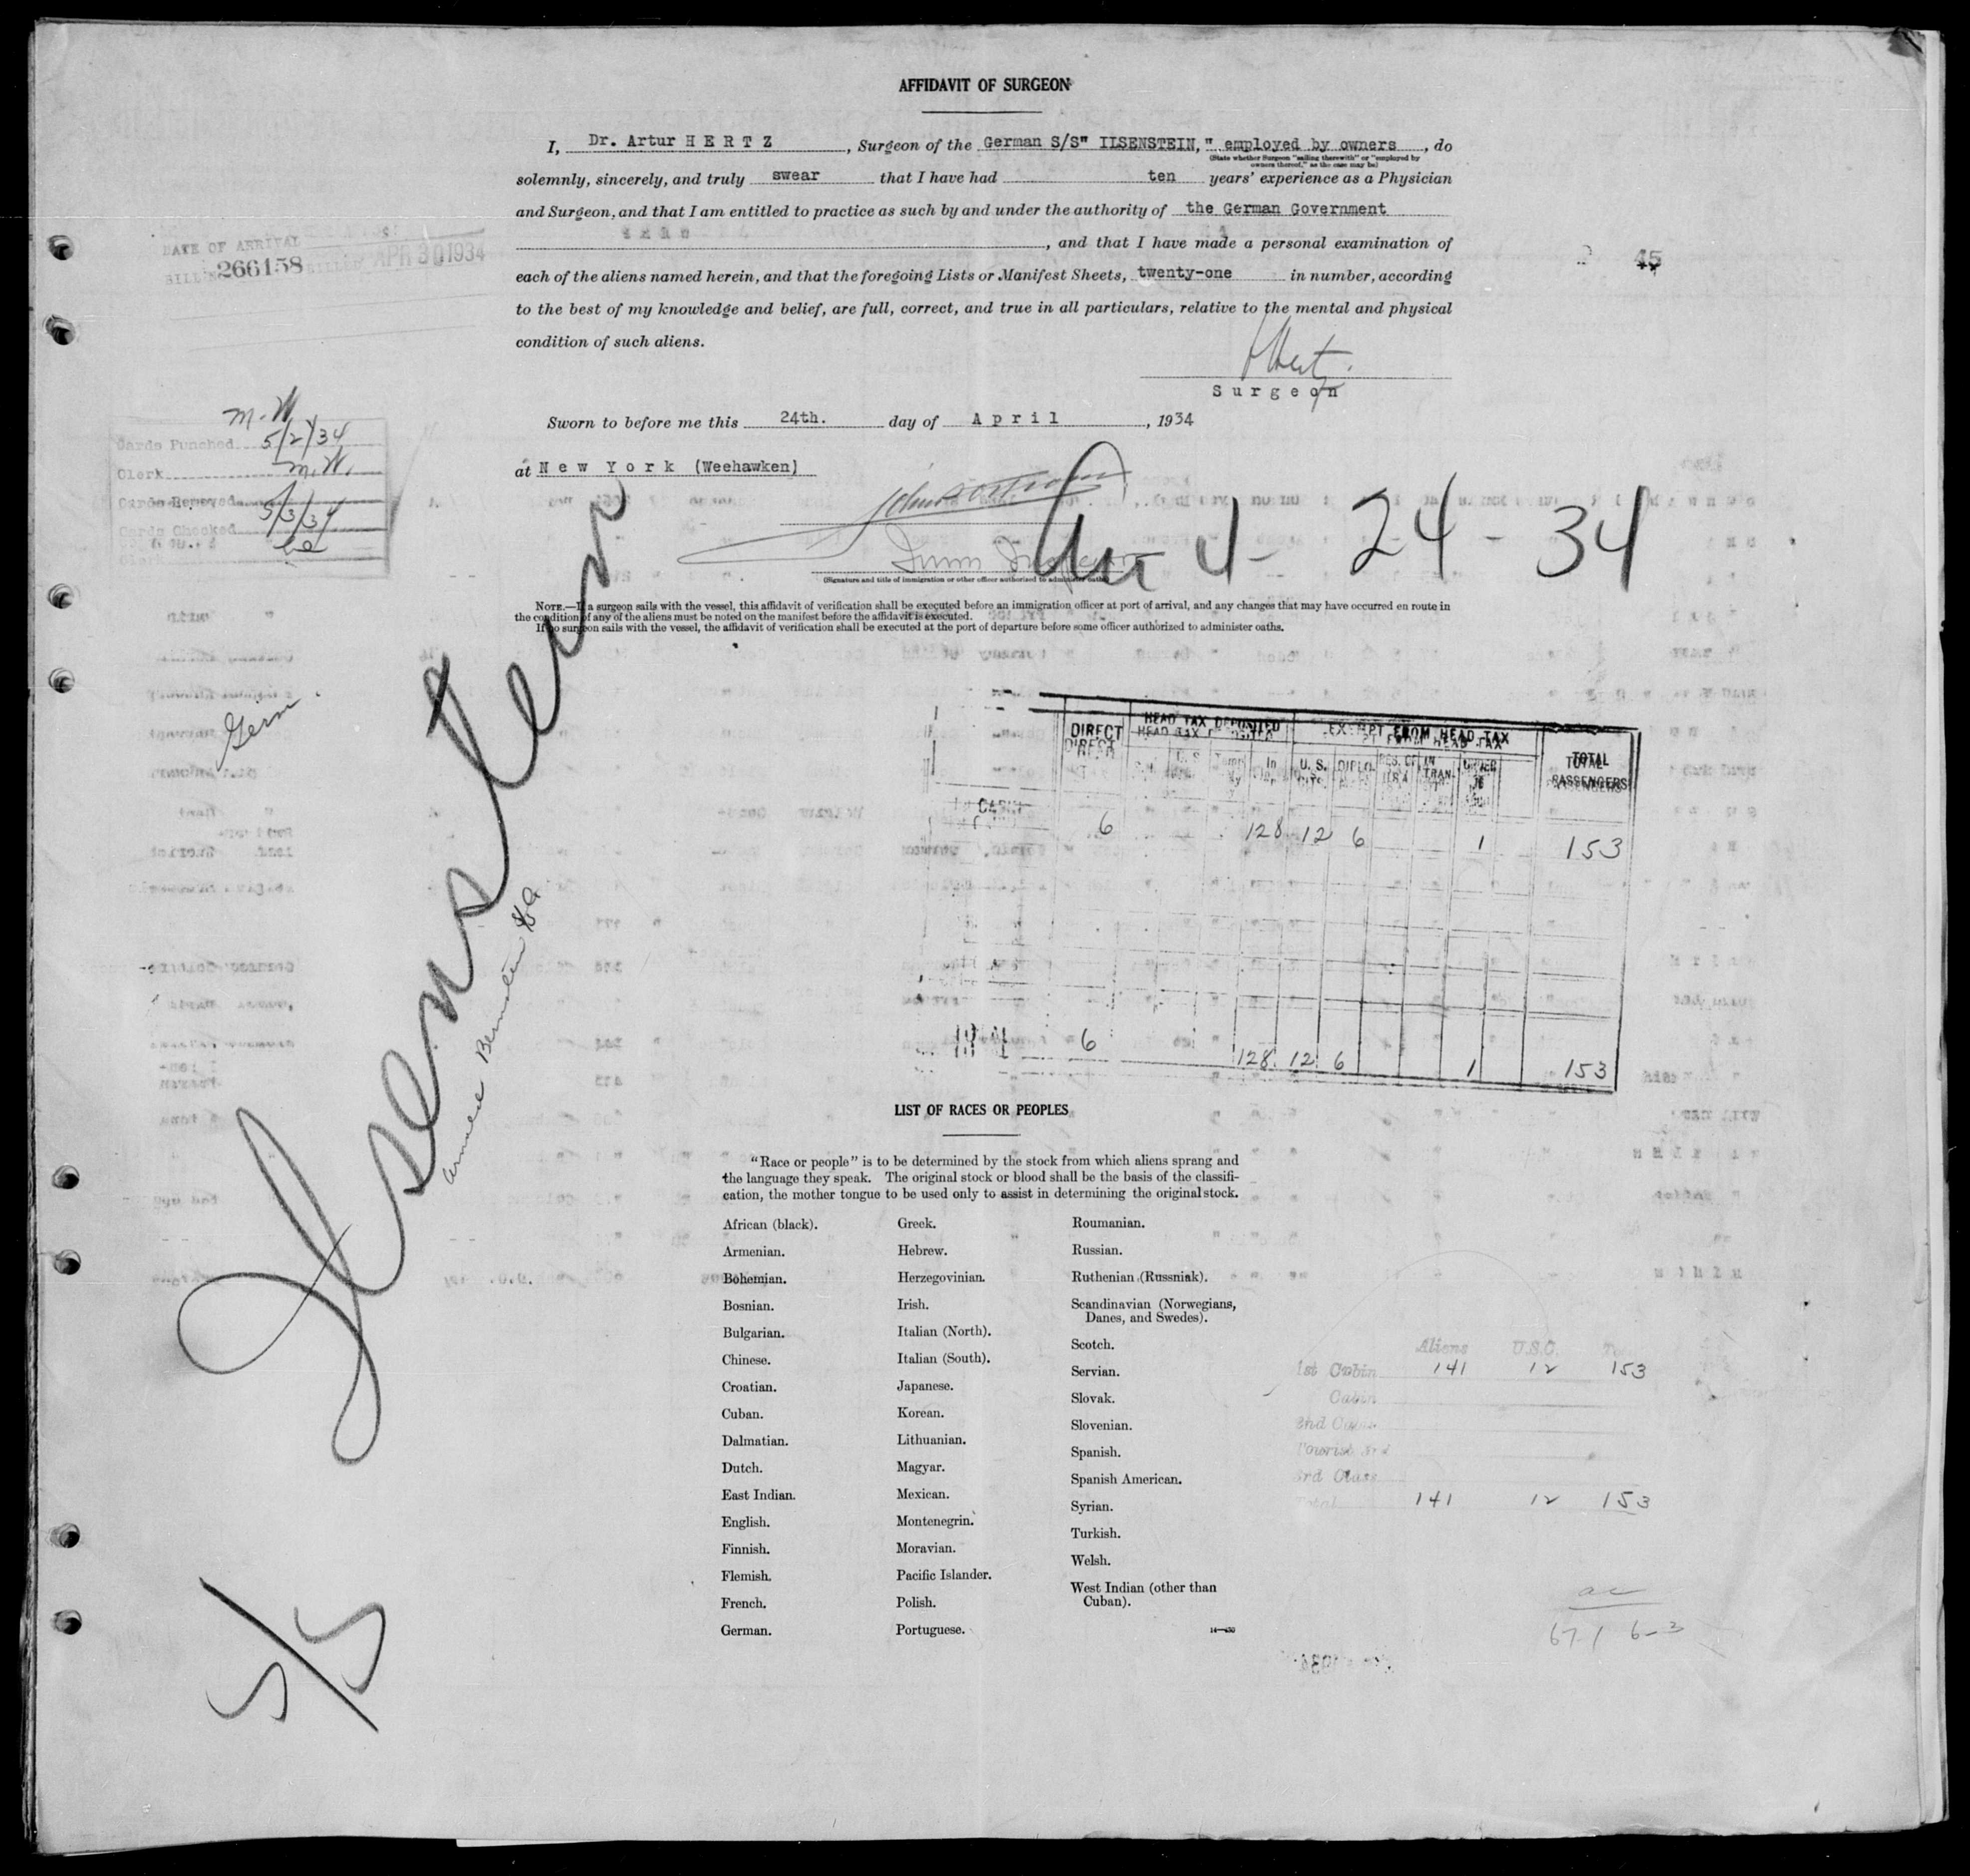 AFFIDAVIT OF SURGEON
I, Dr. Artur H E R T Z , Surgeon of the German S/S" ILSENSTEIN, " employed by owners , do
(State whether Surgeon "sailing therewith" or "employed by
owners thereof," as the case may be)
solemnly, sincerely, and truly swear that I have had ten years' experience as a Physician
and Surgeon, and that I am entitled to practice as such by and under the authority of the German Government
, and that I have made a personal examination of
each of the aliens named herein, and that the foregoing Lists or Manifest Sheets, twenty-one in number, according
to the best of my knowledge and belief, are full, correct, and true in all particulars, relative to the mental and physical
condition of such aliens.
Surgeon
Sworn to before me this 24th. day of A p r i l , 1934
at N e w Y o r k (Weehawken)
(Signature and title of immigration or other officer authorized to administer oaths)
DATE OF ARRIVAL
266158 APR 30 1934
45
M.W.
Cards Punched 5/2/34
Clerk M.W.
Cards Removed
Cards Checked 5/3/34
Clerk
Arr 4 - 24 - 34
NOTE.—If a surgeon sails with the vessel, this affidavit of verification shall be executed before an immigration officer at port of arrival, and any changes that may have occurred en route in
the condition of any of the aliens must be noted on the manifest before the affidavit is executed.
If no surgeon sails with the vessel, the affidavit of verification shall be executed at the port of departure before some officer authorized to administer oaths.
Germ
S/S Ilsenstein
Arnold Bernstein
DIRECT HEAD TAX DEPOSITED EXEMPT FROM HEAD TAX TOTAL PASSENGERS
U. S. DIPLO. IN TRAN.
CABIN 6 128 12 6 1 153
TOTAL 6 128 12 6 1 153
LIST OF RACES OR PEOPLES
"Race or people" is to be determined by the stock from which aliens sprang and
the language they speak. The original stock or blood shall be the basis of the classifi-
cation, the mother tongue to be used only to assist in determining the original stock.
African (black).
Armenian.
Bohemian.
Bosnian.
Bulgarian.
Chinese.
Croatian.
Cuban.
Dalmatian.
Dutch.
East Indian.
English.
Finnish.
Flemish.
French.
German.
Greek.
Hebrew.
Herzegovinian.
Irish.
Italian (North).
Italian (South).
Japanese.
Korean.
Lithuanian.
Magyar.
Mexican.
Montenegrin.
Moravian.
Pacific Islander.
Polish.
Portuguese.
Roumanian.
Russian.
Ruthenian (Russniak).
Scandinavian (Norwegians,
Danes, and Swedes).
Scotch.
Servian.
Slovak.
Slovenian.
Spanish.
Spanish American.
Syrian.
Turkish.
Welsh.
West Indian (other than
Cuban).
Aliens U.S.C.
1st Cabin 141 12 153
Cabin
2nd Cabin
Tourist 3rd
3rd Class
Total 141 12 153